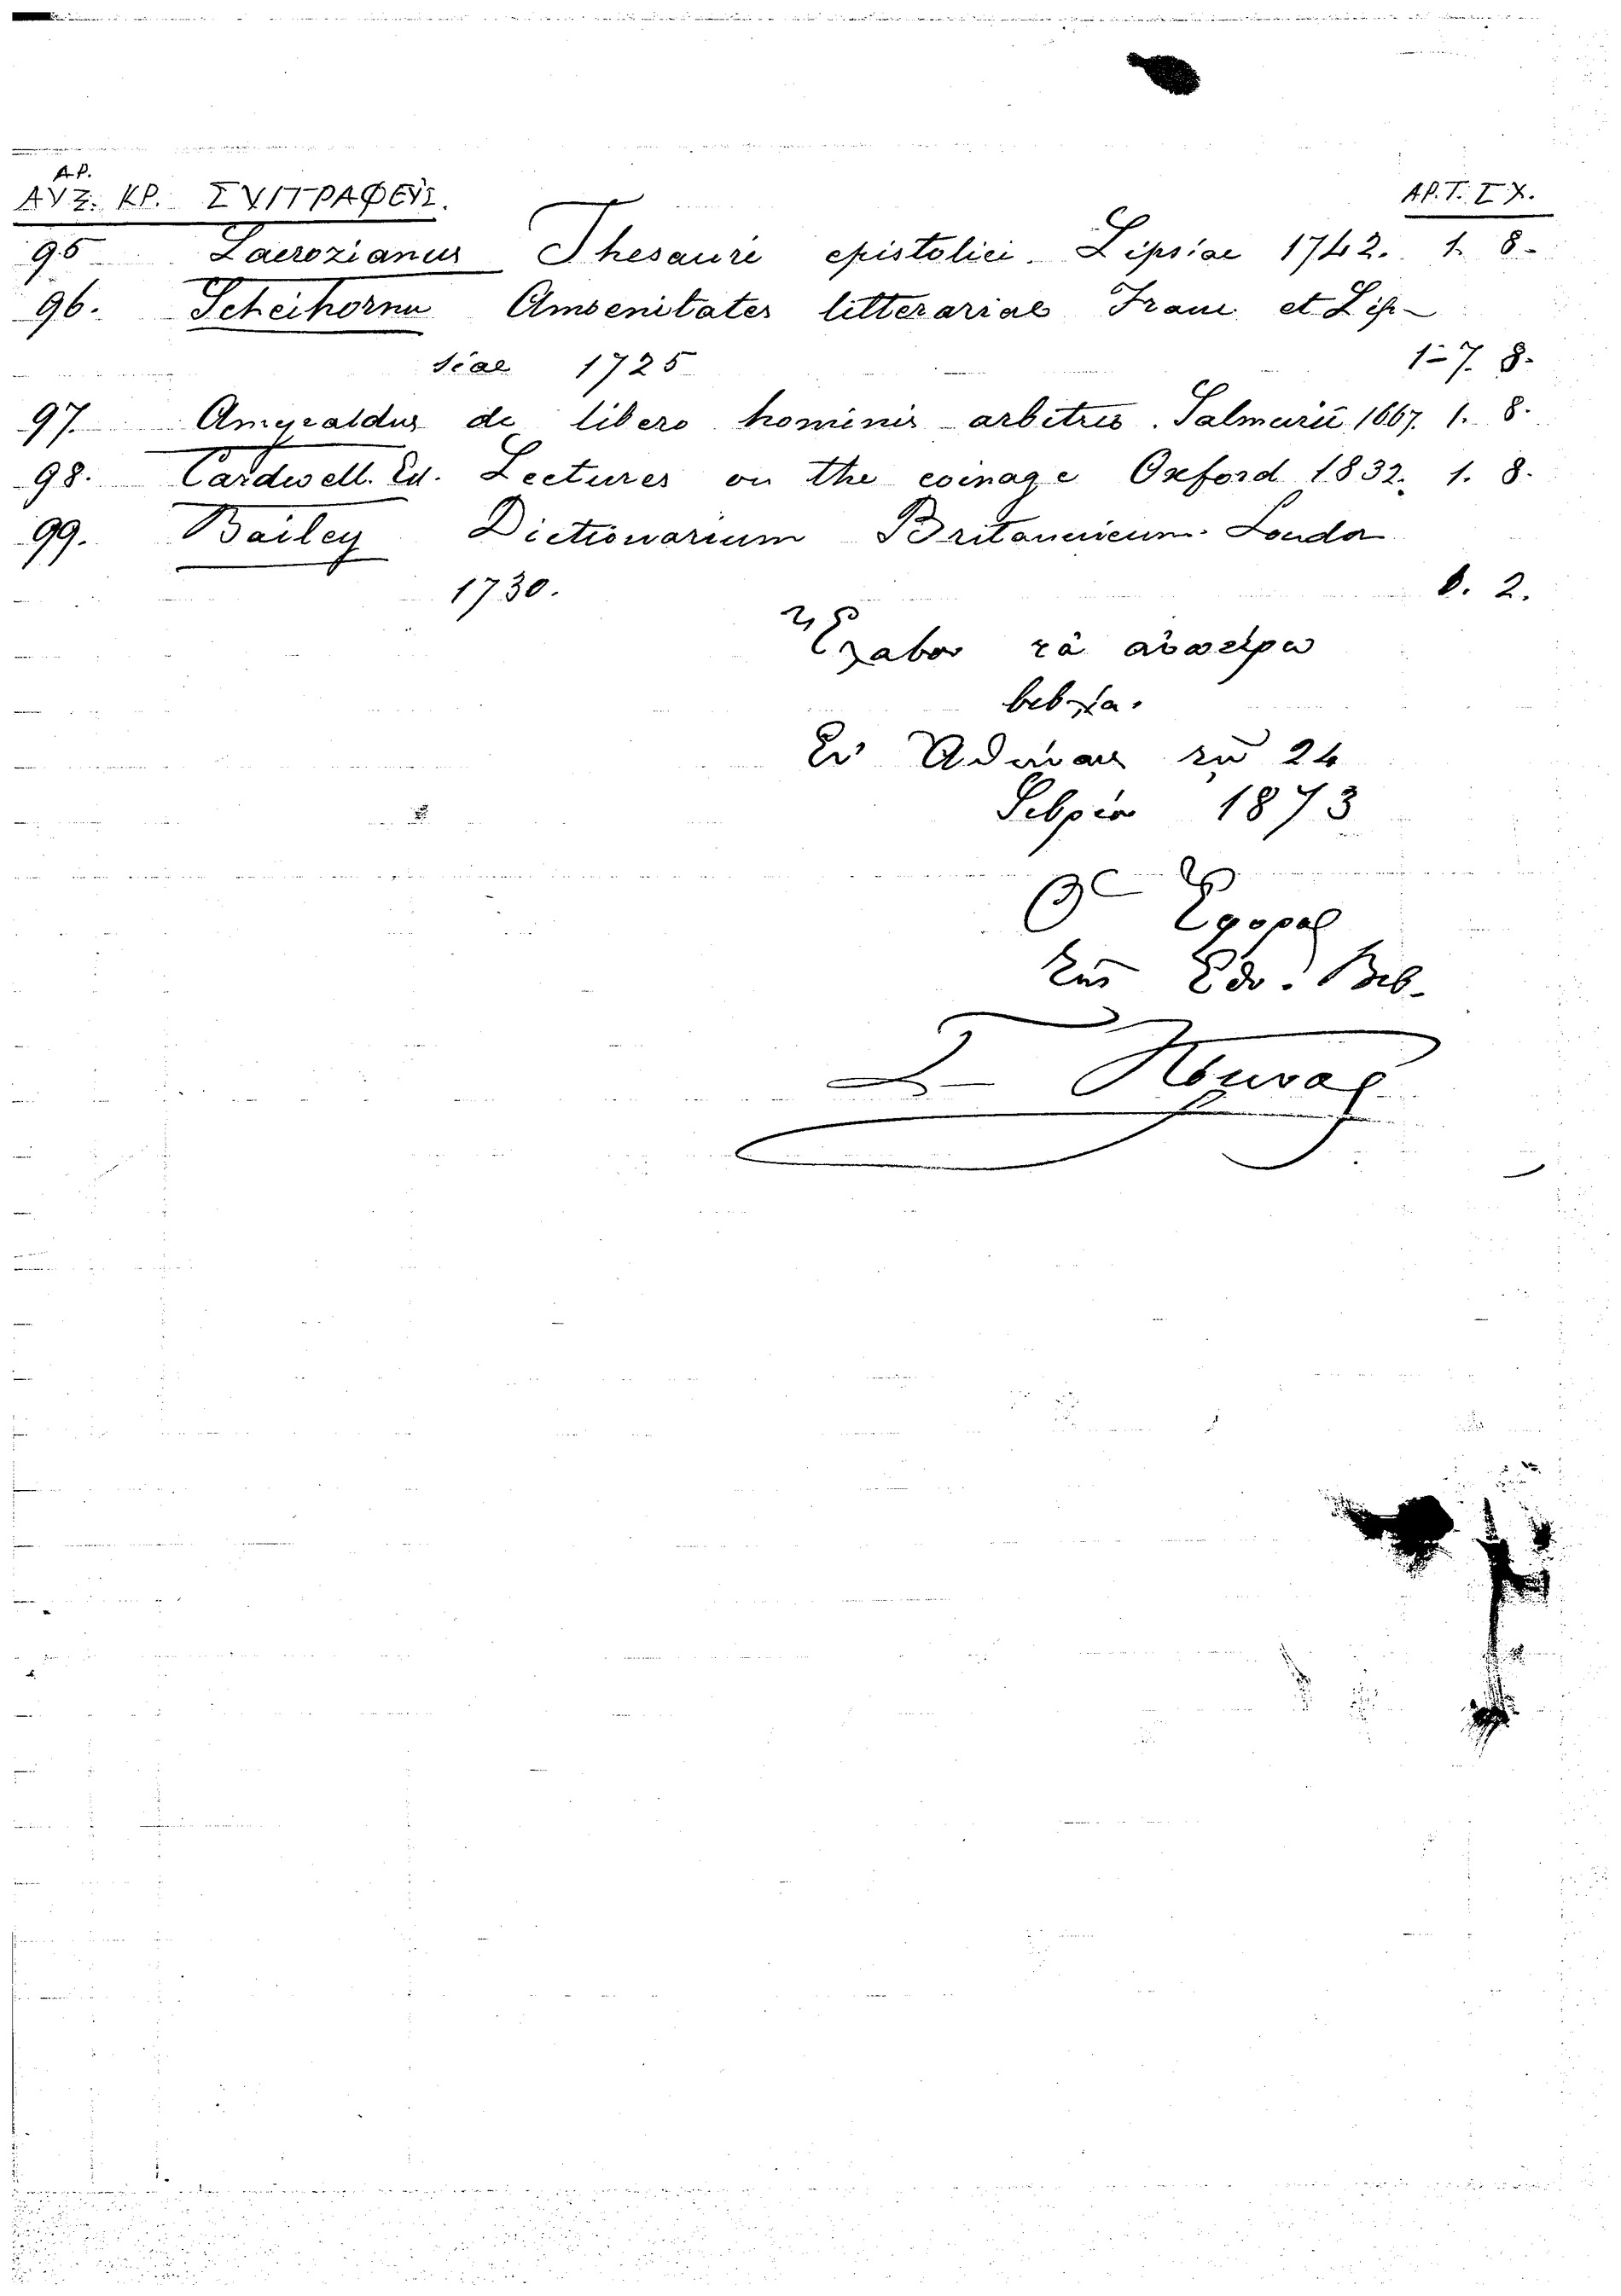 ΑΡ.
ΑΥΞ. ΚΡ. ΣΥΓΓΡΑΦΕΙΣ. ΑΡ.Τ. ΣΧ.
95 Lacrozianus Thesauri epistolici. Lipsiae 1742. 1. 8-
96. Scheihornu Amoenitates litterariae Franc. et Lip-
siae 1725 1-7. 8-
97. Amyraldus de libero hominis arbitrio. Salmurii 1667. 1. 8.
98. Cardwell. Ed. Lectures on the coinage Oxford 1832. 1. 8.
99. Bailey Dictionarium Britannicum. London
1730. 2.
Ἔλαβον τὰ ἀνωτέρω
βιβλία.
Ἐν Ἀθήναις τῇ 24
Σεβρίου 1873
Ὁ Ἔφορος
τῆς Ἐθν. Βιβ.